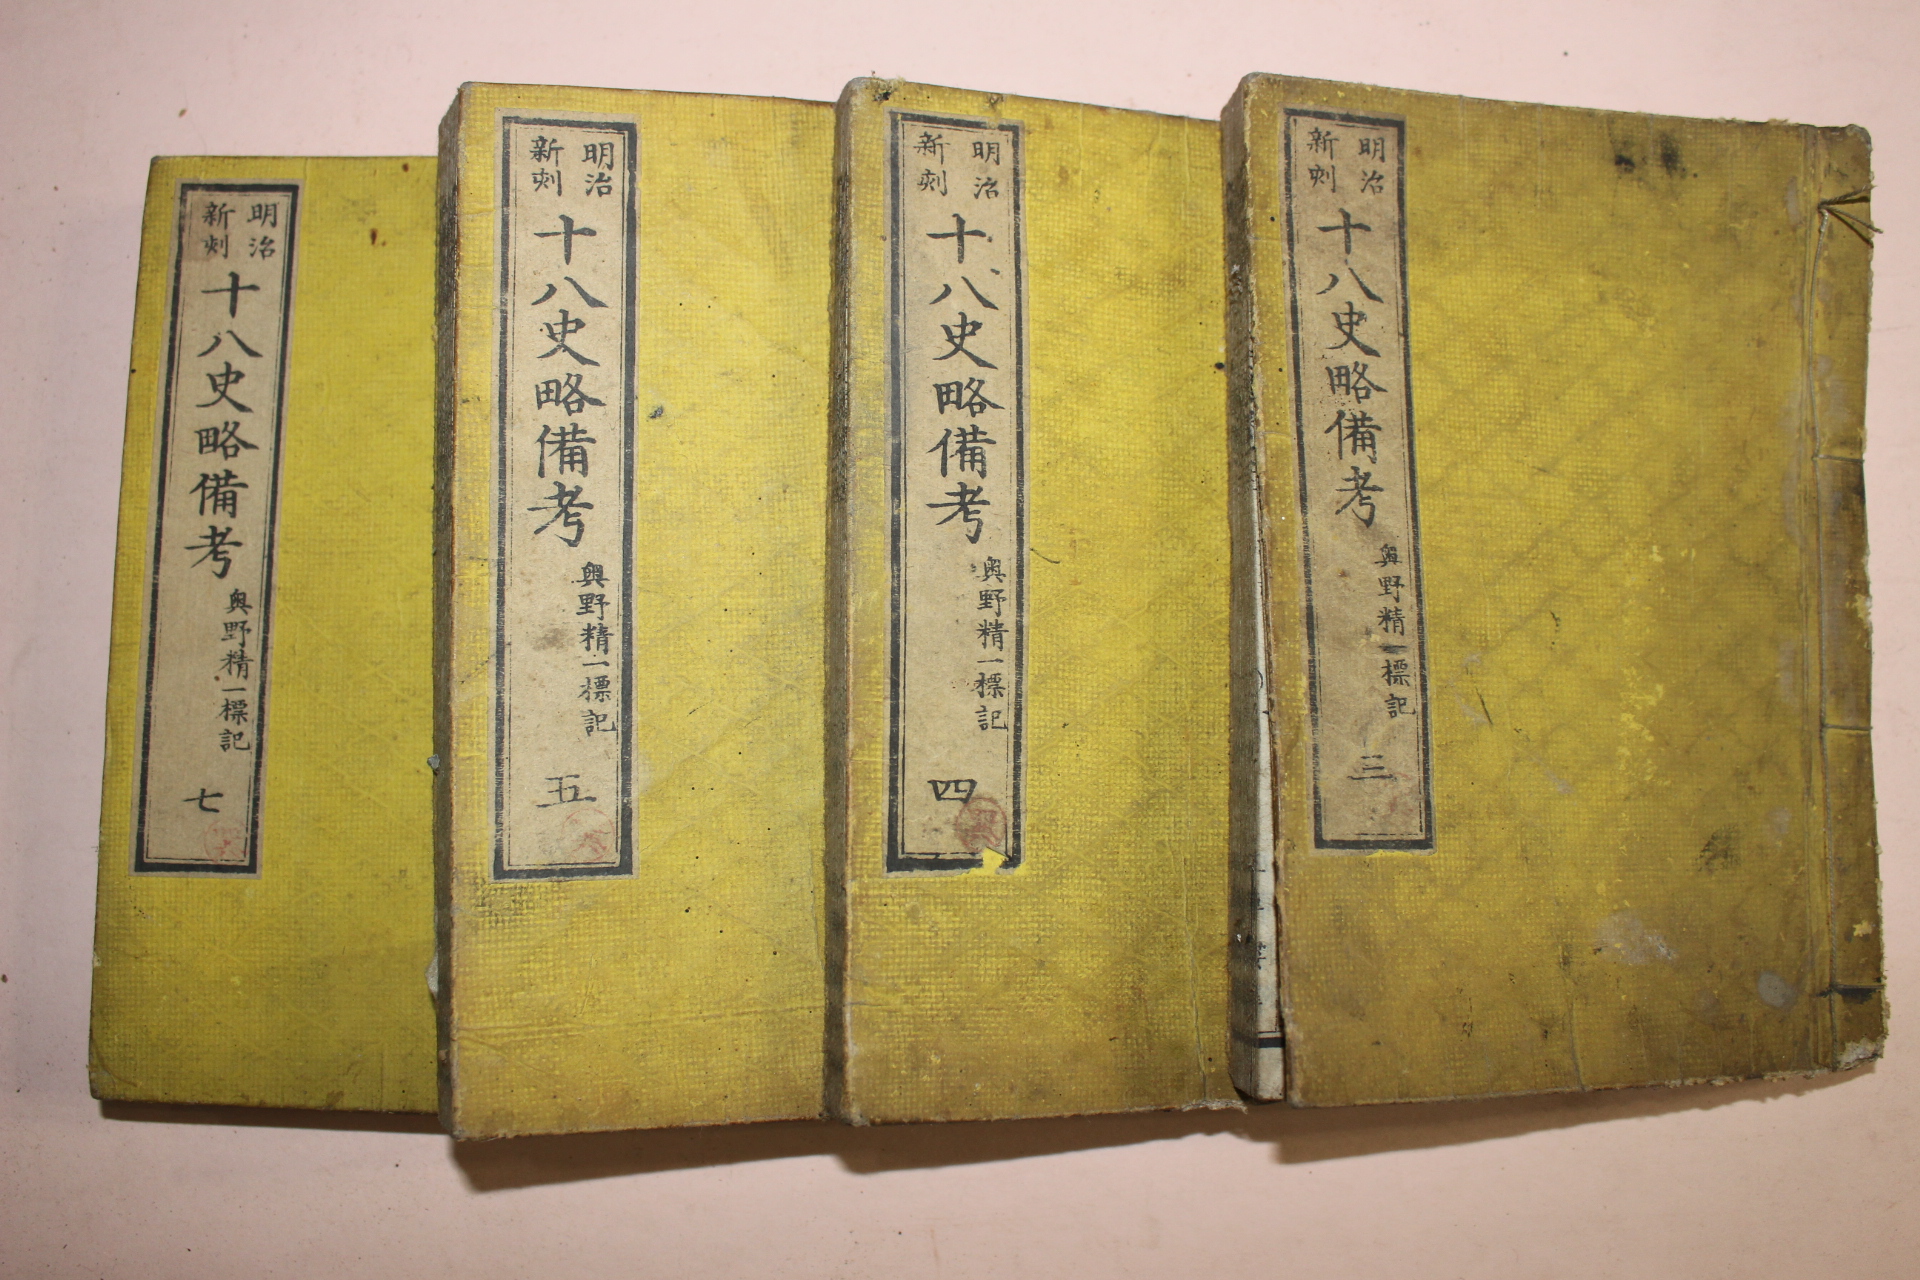 明治
新刻
十八史略備考
奥野精一標記
三
明治
新刻
十八史略備考
奥野精一標記
四
明治
新刻
十八史略備考
奥野精一標記
五
明治
新刻
十八史略備考
奥野精一標記
七